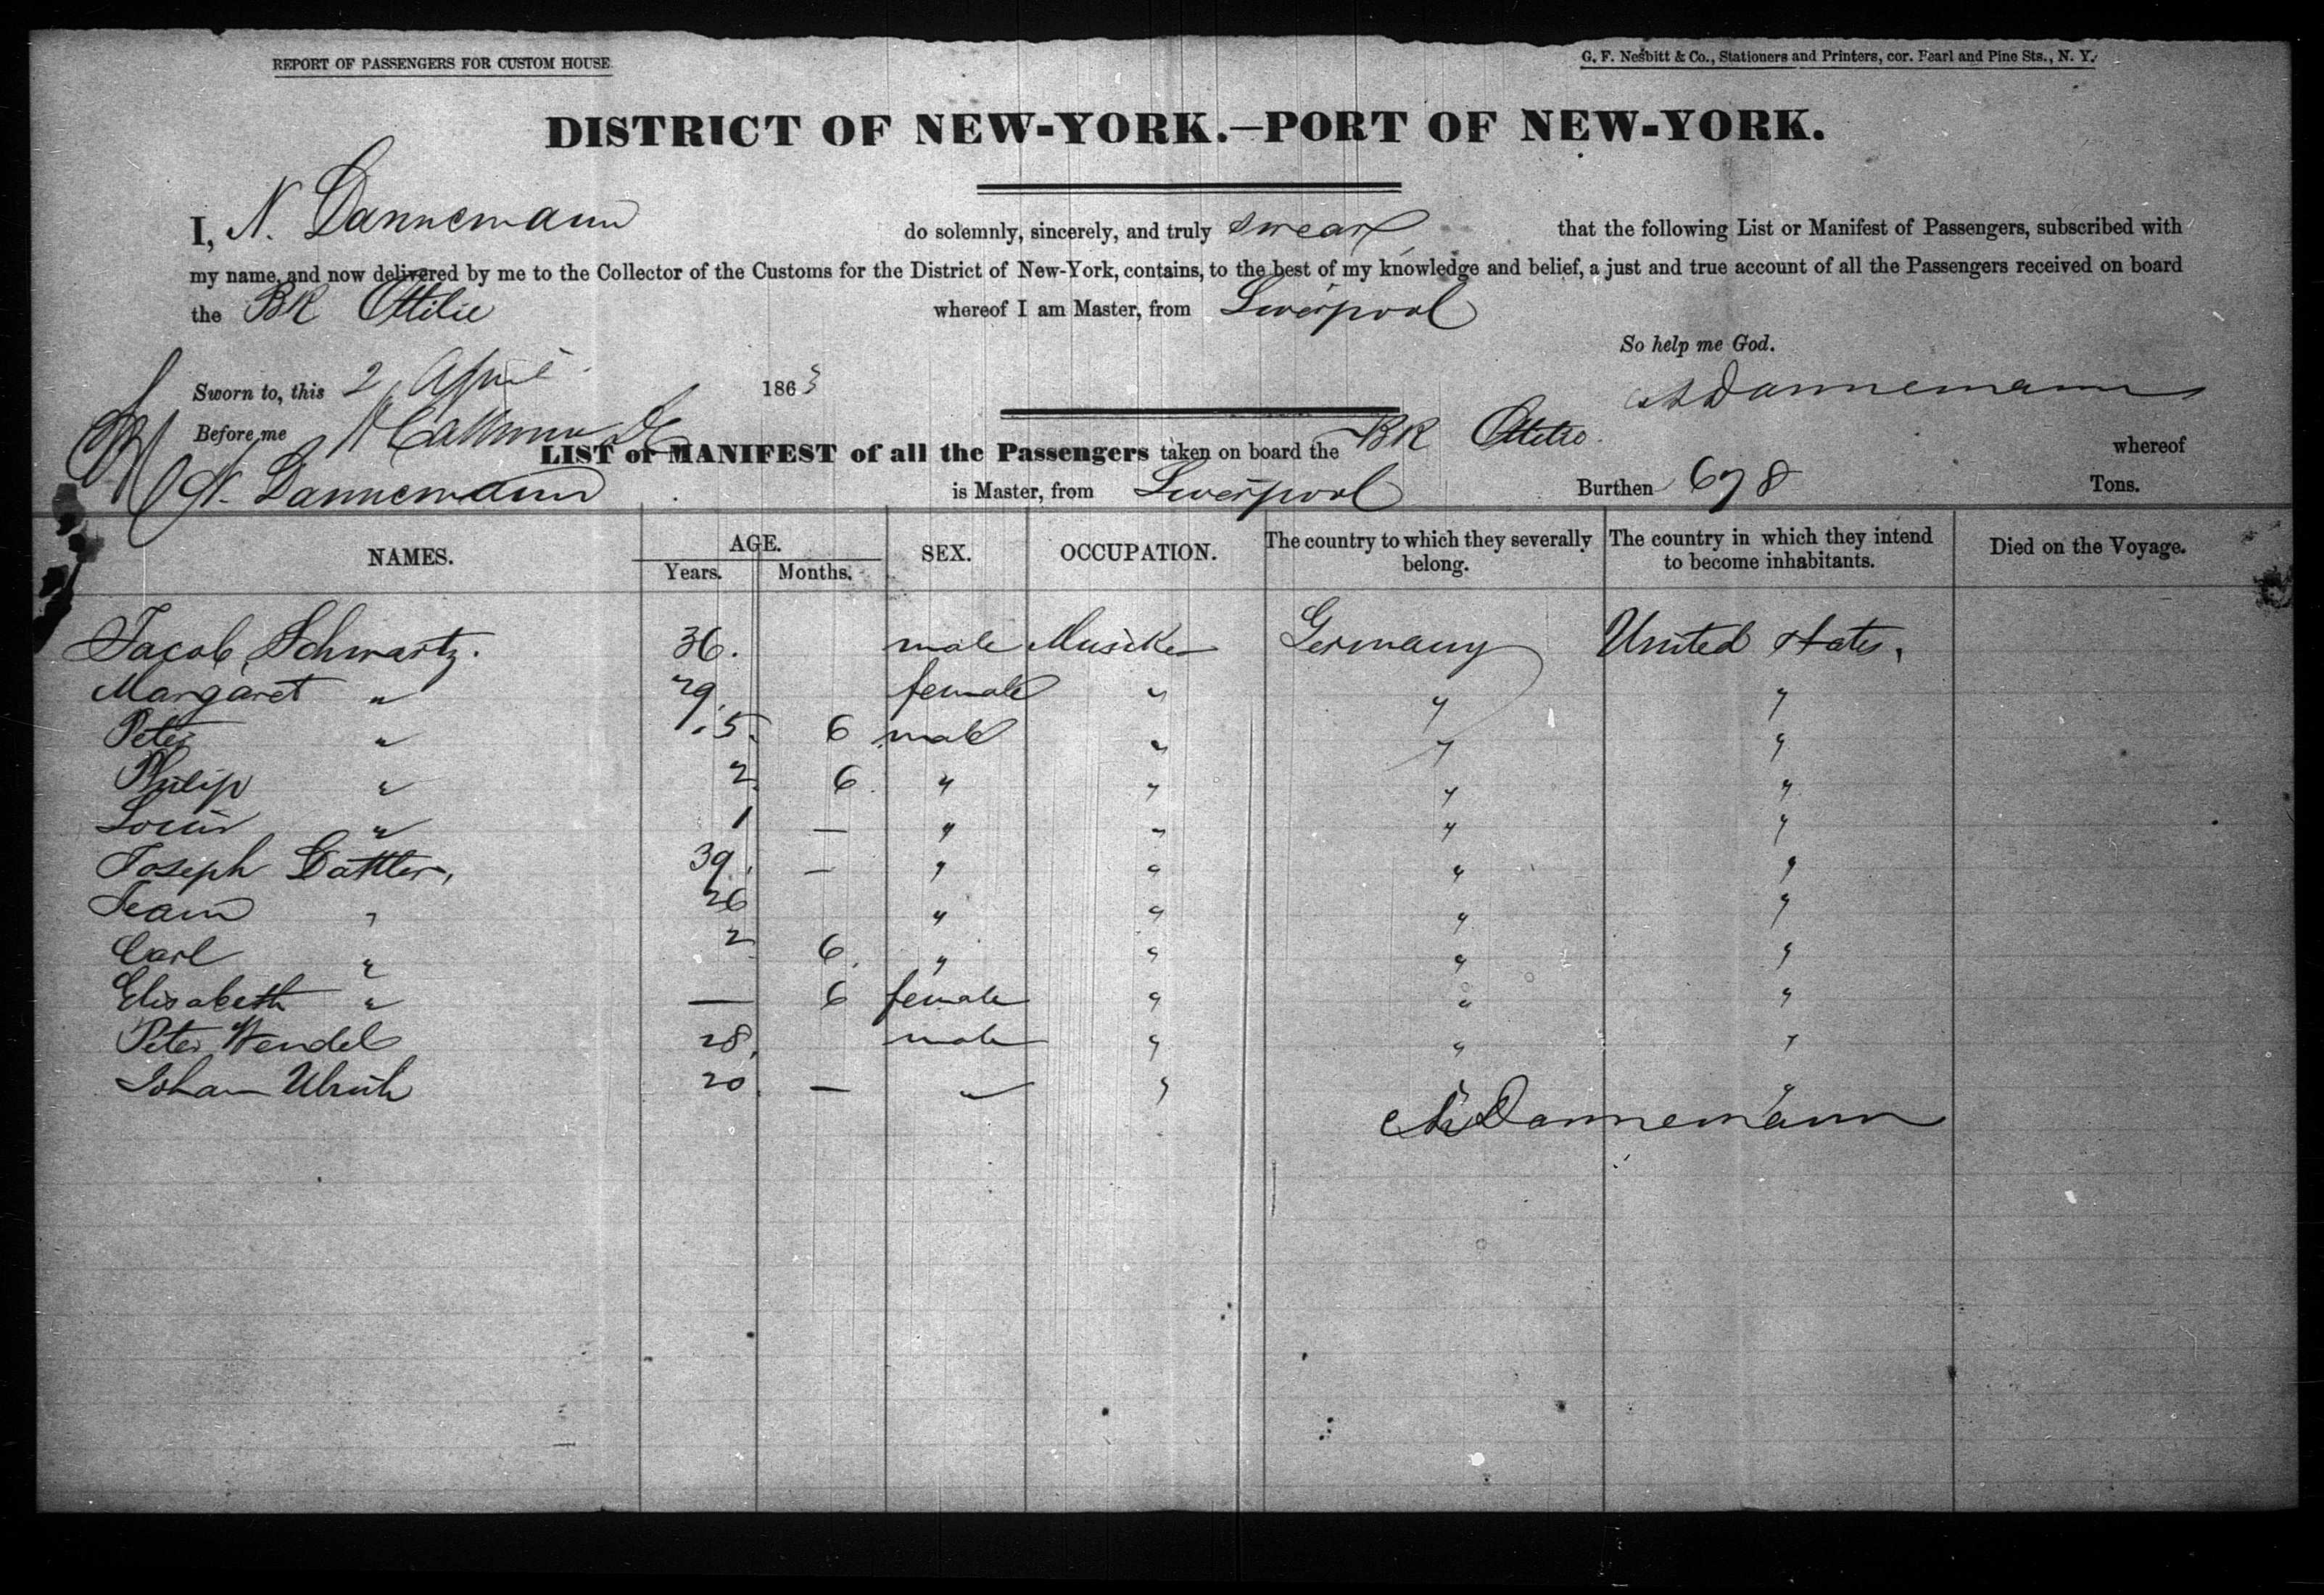 REPORT OF PASSENGERS FOR CUSTOM HOUSE.
G. F. Nesbitt & Co., Stationers and Printers, cor. Pearl and Pine Sts., N. Y.
DISTRICT OF NEW-YORK.—PORT OF NEW-YORK.
I, N. Dannemann do solemnly, sincerely, and truly swear that the following List or Manifest of Passengers, subscribed with
my name, and now delivered by me to the Collector of the Customs for the District of New-York, contains, to the best of my knowledge and belief, a just and true account of all the Passengers received on board
the BK Ottilie whereof I am Master, from Liverpool
So help me God.
Sworn to, this 2 April 1863 N Dannemann
Before me
LIST or MANIFEST of all the Passengers taken on board the BK Ottilie whereof
N. Dannemann is Master, from Liverpool Burthen 678 Tons.
NAMES. AGE. Years. Months. SEX. OCCUPATION. The country to which they severally belong. The country in which they intend to become inhabitants. Died on the Voyage.
Jacob Schwartz. 36. male Musiker Germany United States,
Margaret " 29. female " " "
Peter " 5. 6 male " " "
Philip " 2 6 " " " "
Louis " 1 — " " " "
Joseph Dattler, 39. — " " " "
" 26 " " " "
Carl " 2 6. " " " "
Elisabeth " — 6 female " " "
Peter Wendel 28, male " " "
Johan Ulrich 20. — " " " "
N Dannemann